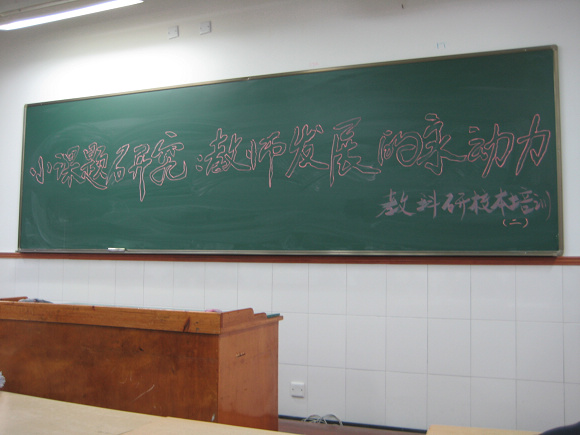 小课题研究:教师发展的永动力
教科研技术培训
(二)